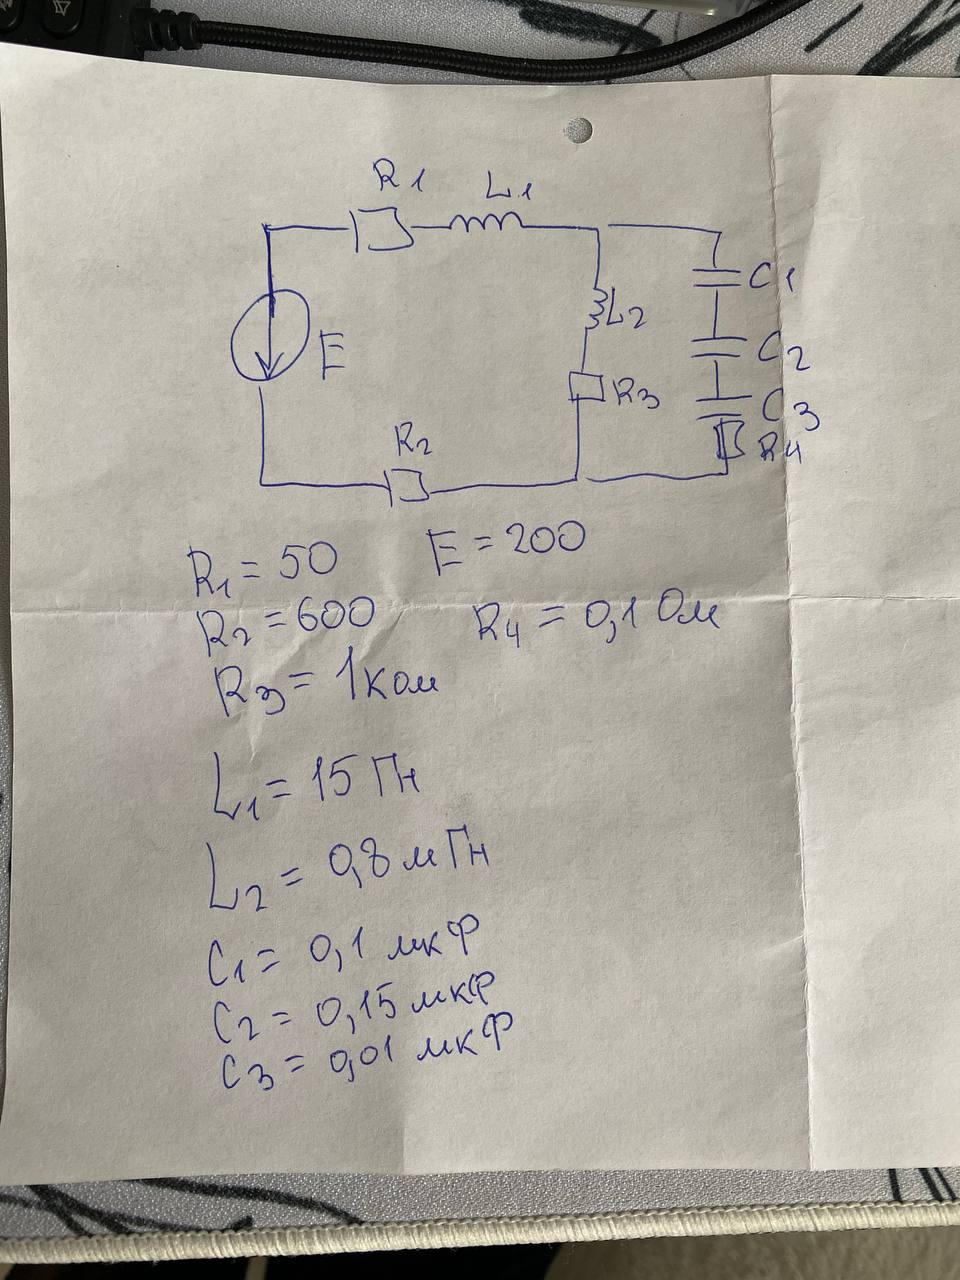 R1 L1
C1
L2
E
C2
R3
C3
R2
R4
R1 = 50 E = 200
R2 = 600 R4 = 0,1 Ом
R3 = 1 ком
L1 = 15 Гн
L2 = 0,8 мГн
C1 = 0,1 мкФ
C2 = 0,15 мкФ
C3 = 0,01 мкФ